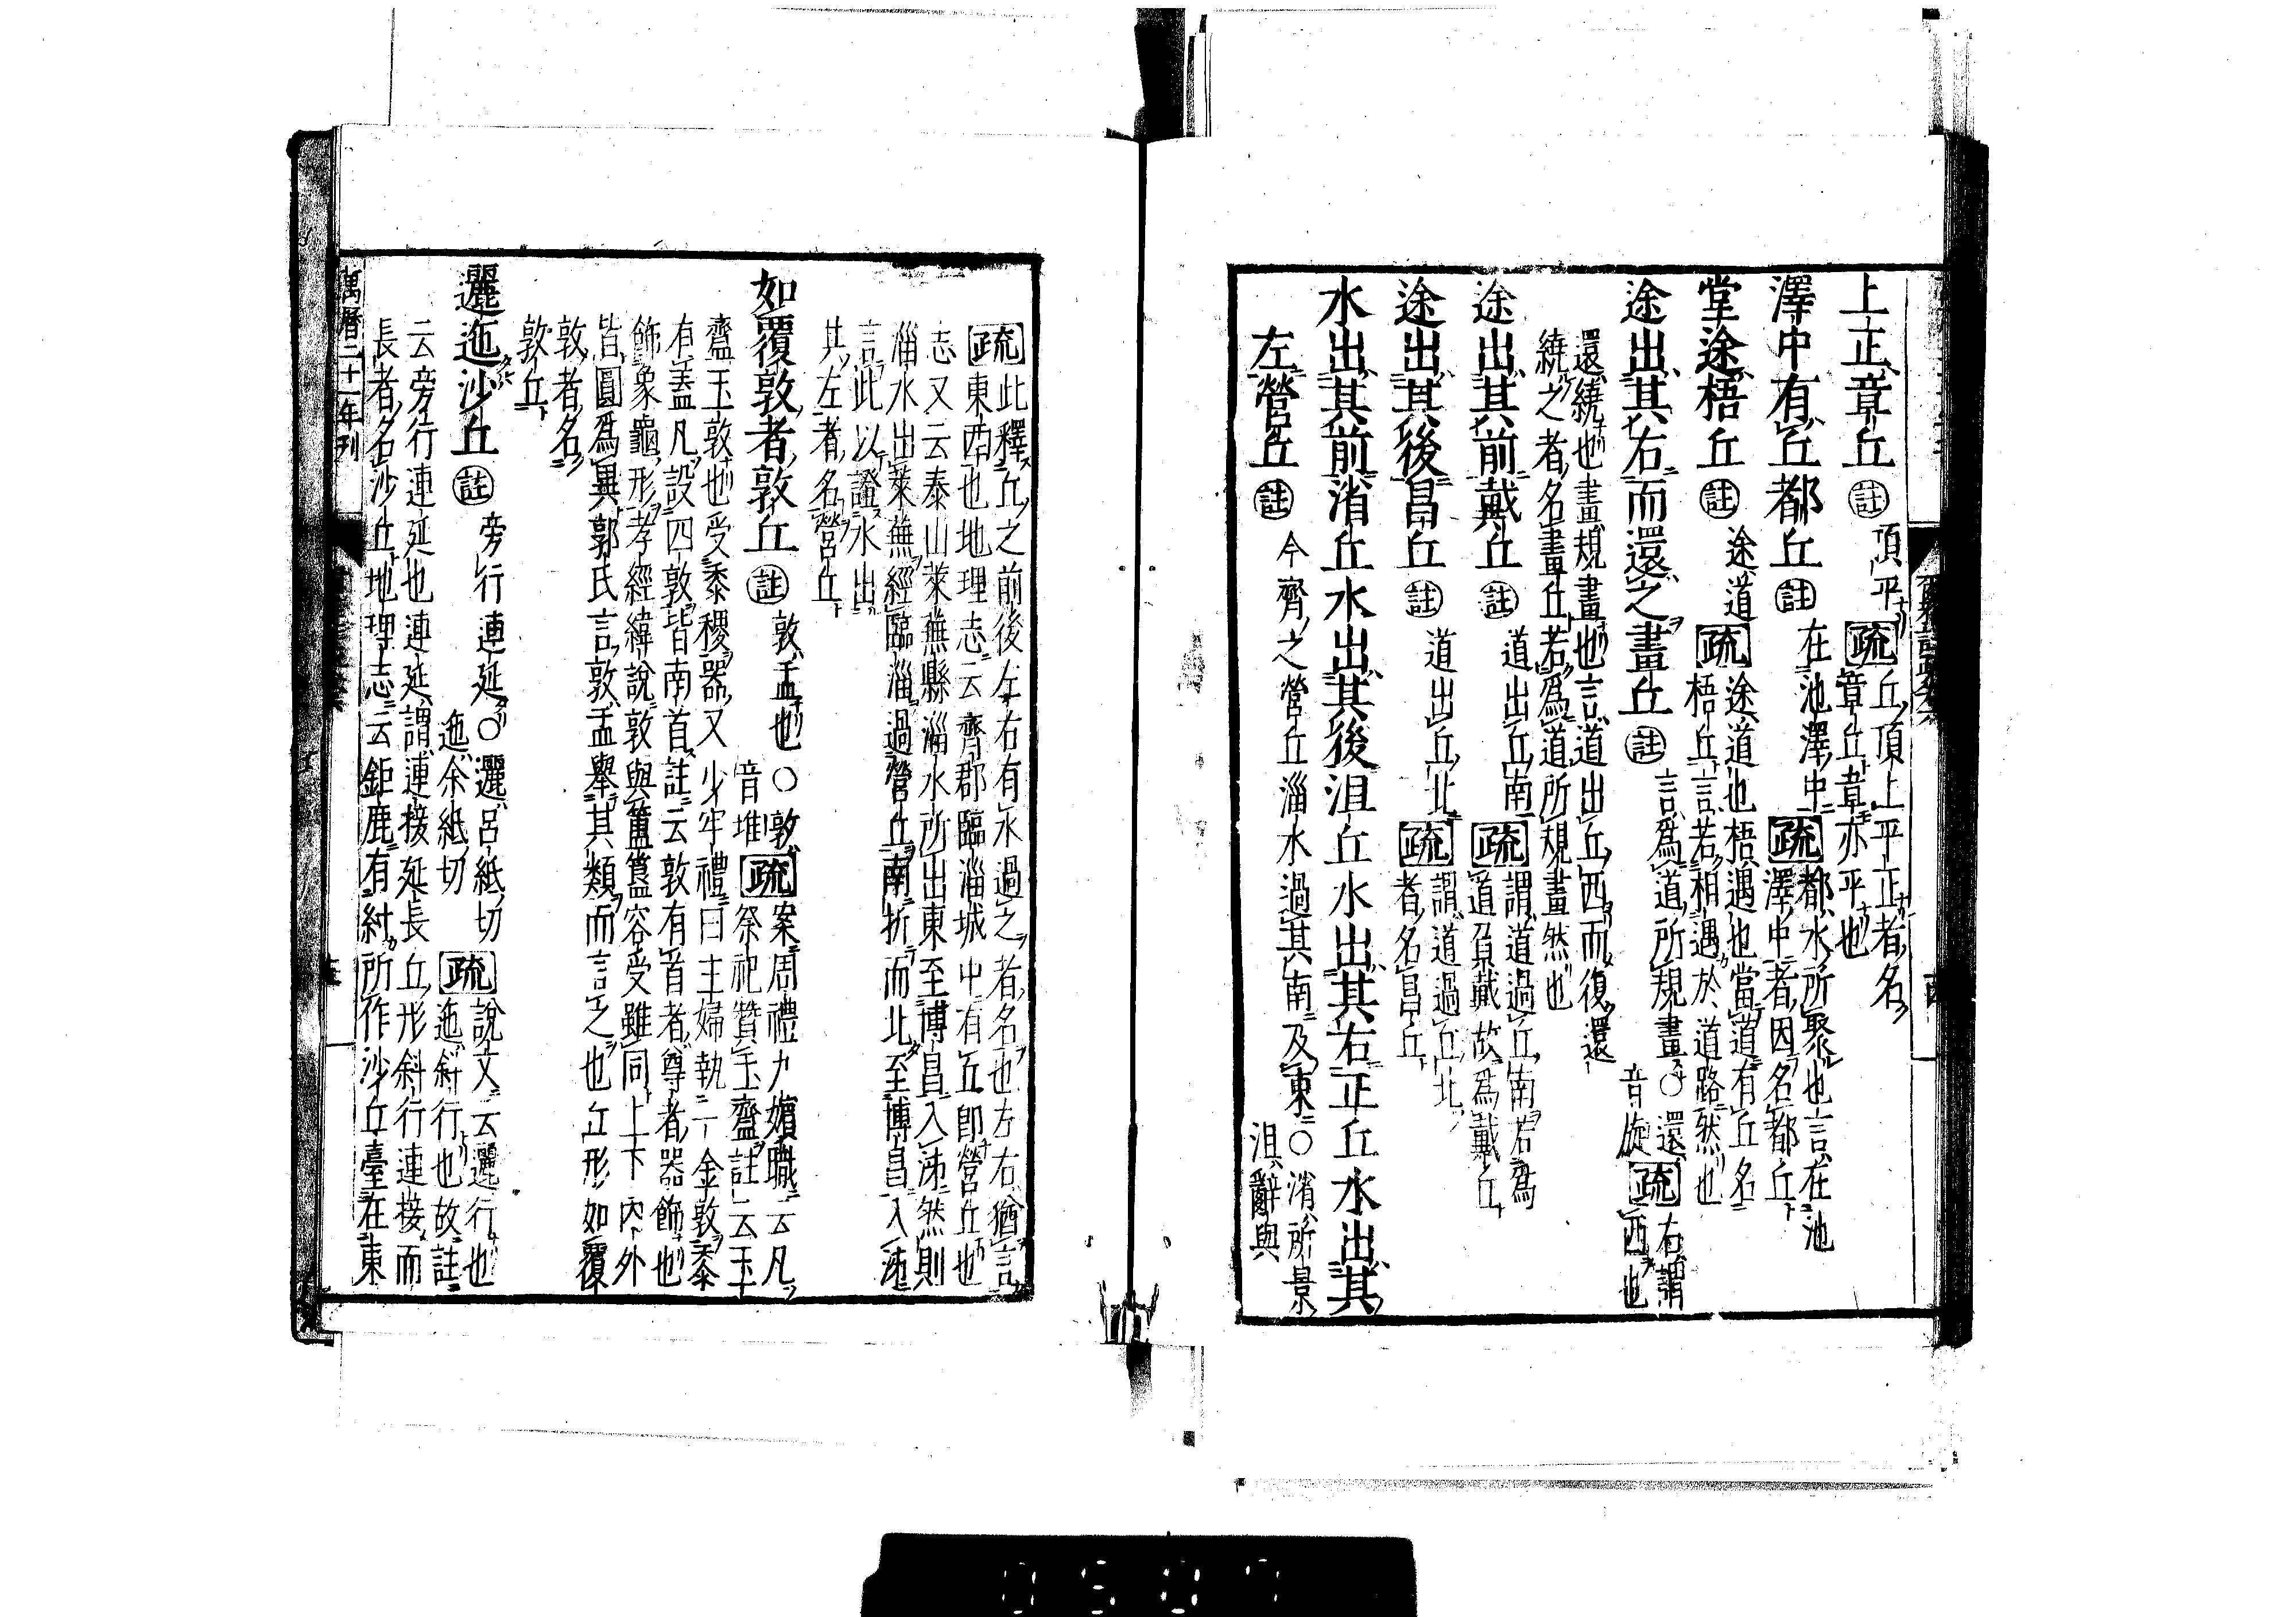 上正章丘註頂平疏丘頂上平正者名
章丘章亦平也
澤中有丘都丘註在池澤中疏都水所聚也言在池
澤中者因名都丘
堂途梧丘註途道疏途道也梧遇也當道有丘名
梧丘言若相遇於道路然也
途出其右而還之畫丘註言為道所規畫○還音旋疏右謂
西也
還繞也畫規畫也言道出丘西而復還
繞之者名畫丘若為道所規畫然也
途出其前戴丘註道出丘南疏謂道過丘南若為
道負戴故為戴丘
途出其後昌丘註道出丘北疏謂道過丘北
者名昌丘
水出其前渻丘水出其後沮丘水出其右正丘水出其
左營丘註今齊之營丘淄水過其南及東○渻所景
沮辭與
疏此釋丘之前後左右有水過之者名也左右猶言
東西也地理志云齊郡臨淄城中有丘即營丘也
志又云泰山萊蕪縣淄水所出東至博昌入泲然則
淄水出萊蕪經臨淄過營丘南折而北至博昌入泲
言此以證水出
其左者名營丘
如覆敦者敦丘註敦盂也○敦音堆疏案周禮九嬪職云凡
祭祀贊玉齍註云玉
齍玉敦也受黍稷器又少牢禮曰主婦執一金敦黍
有蓋凡設四敦皆南首註云敦有首者尊者器飾也
飾象龜形孝經緯說敦與簠簋容受雖同上下內外
皆圓為異郭氏言敦盂舉其類而言之也丘形如覆
敦者名
敦丘
邐迤沙丘註旁行連延○邐呂紙切
迤余紙切疏說文云邐行也
迤斜行也故註
云旁行連延也連延謂連接延長丘形斜行連接而
長者名沙丘地理志云鉅鹿有紂所作沙丘臺在東
萬曆二十一年刊